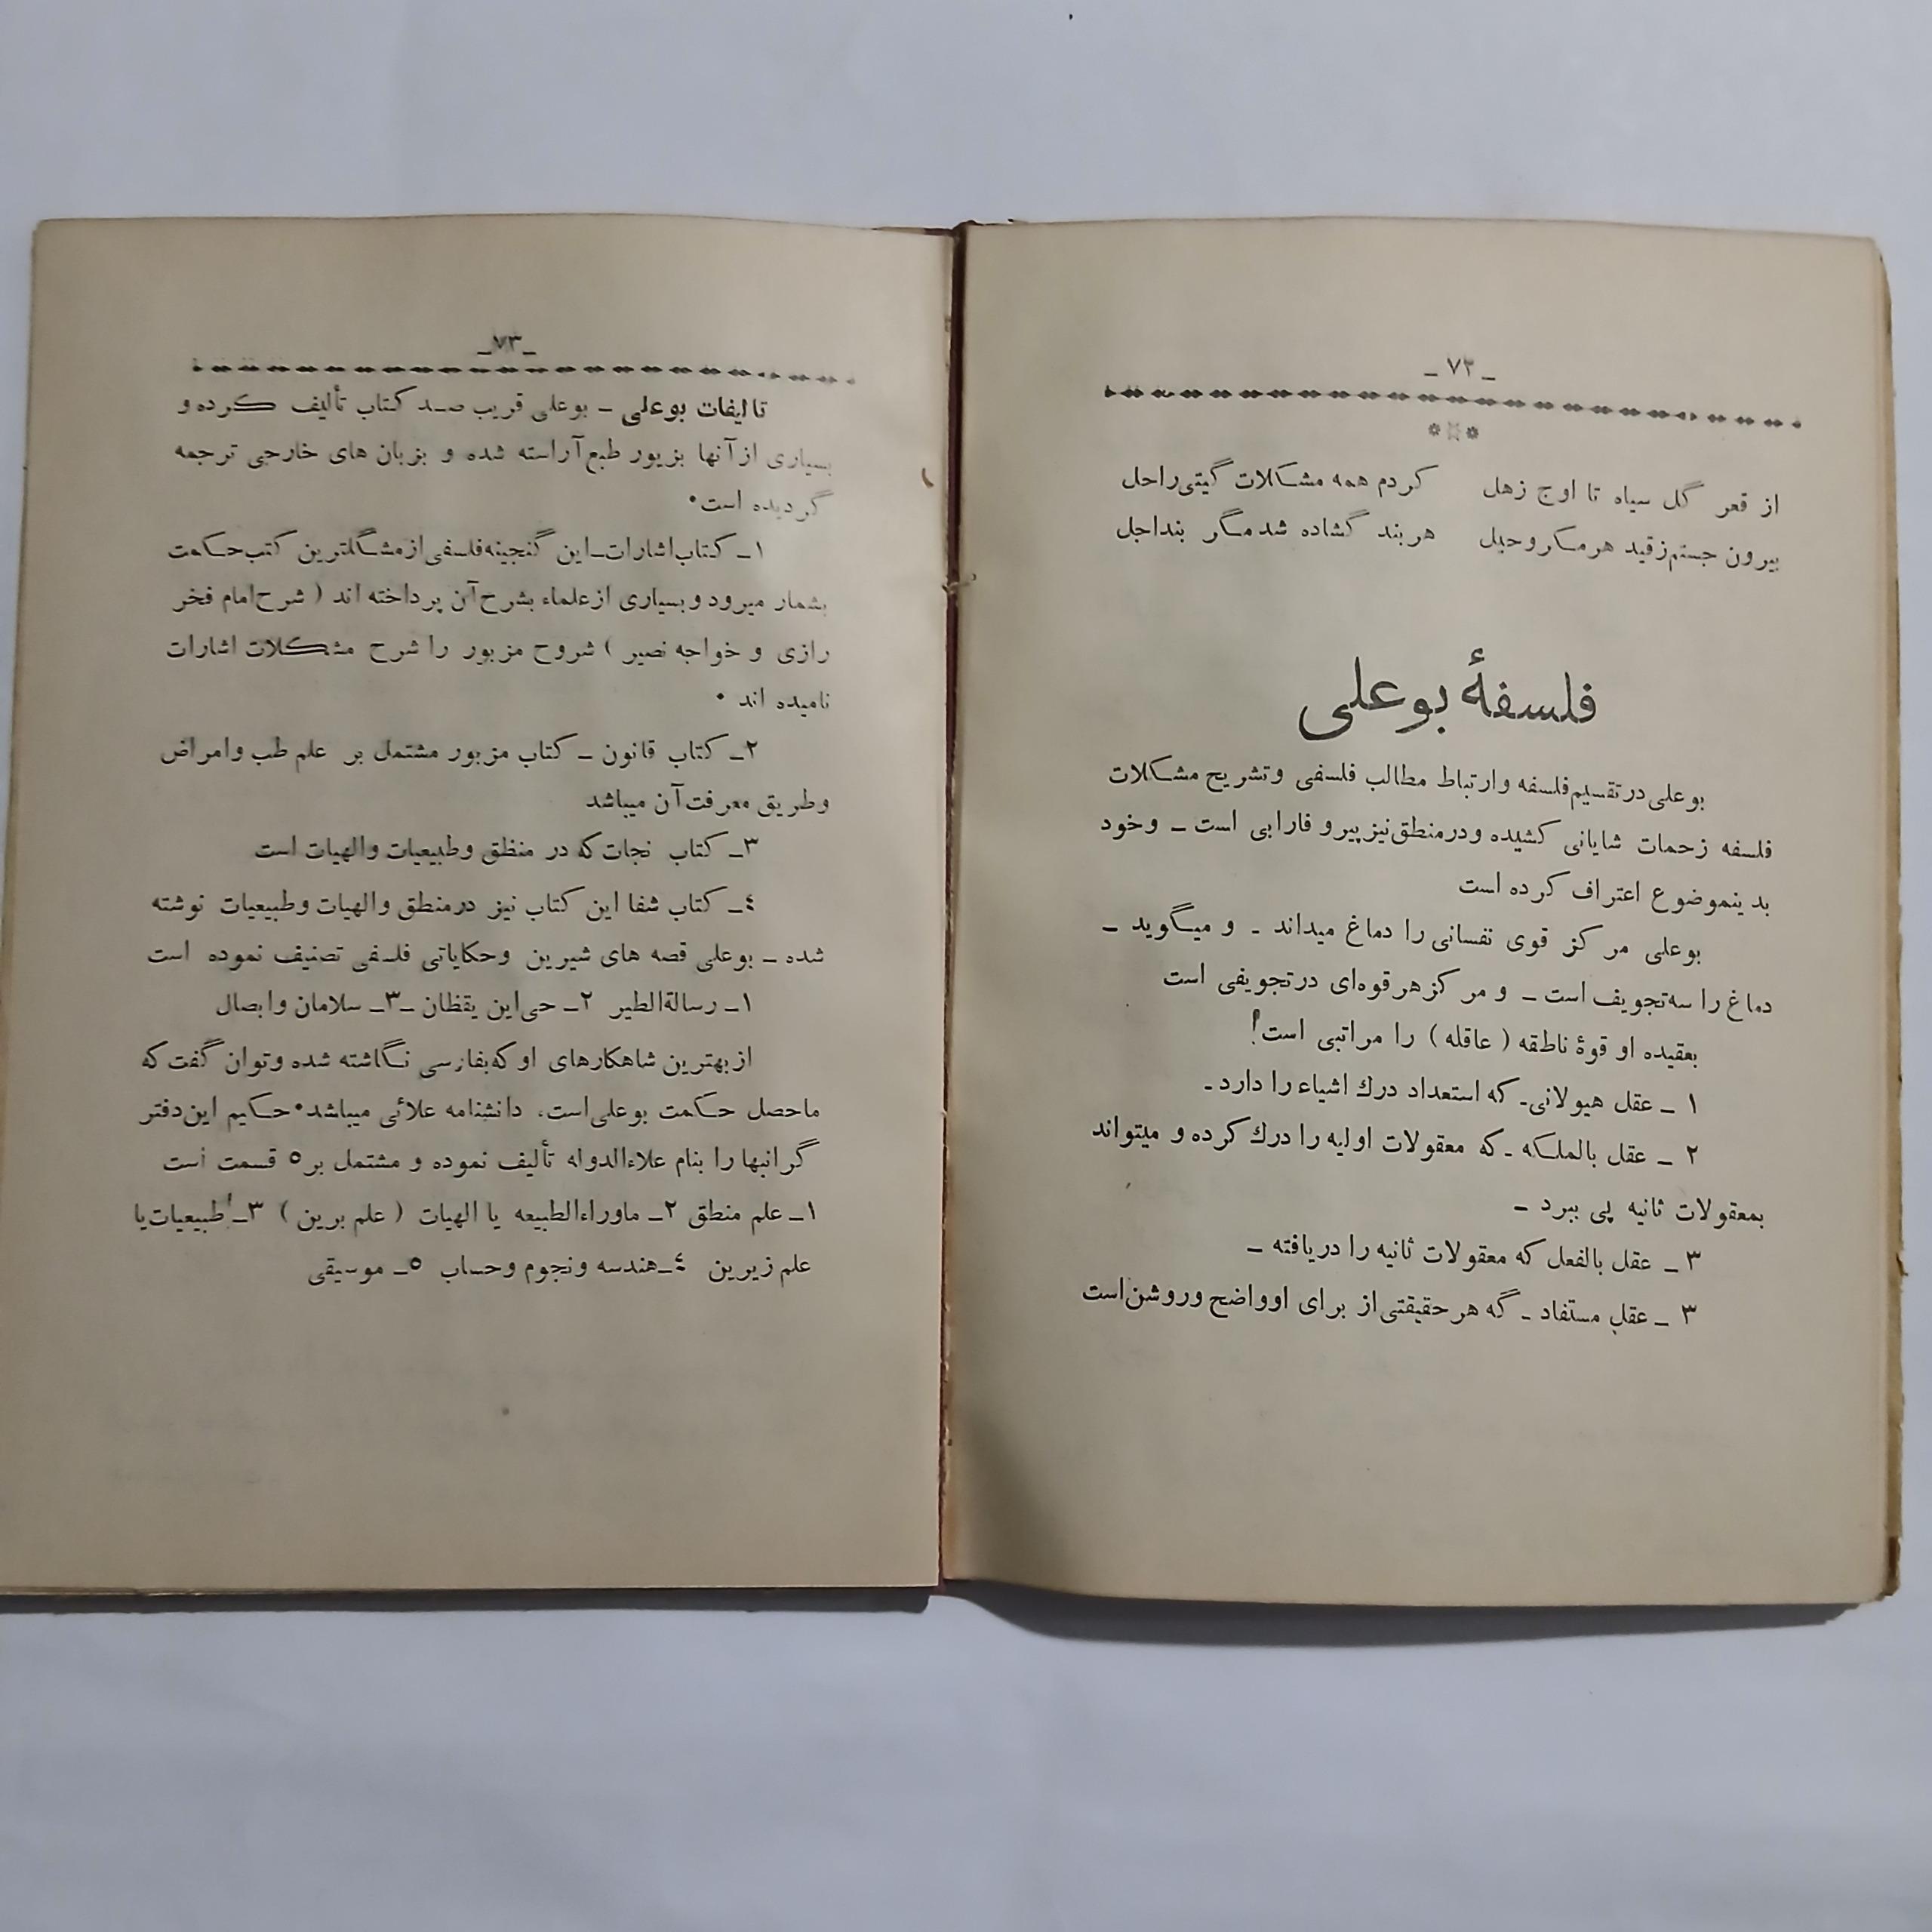 ـ ۷۲ ـ
از قعر گل سیاه تا اوج زهل    کردم همه مشکلات گیتی را حل
بیرون جستم زقید هر مکر و حیل    هر بند گشاده شد مگر بند اجل
فلسفهٔ بوعلی
بوعلی در تقسیم فلسفه وارتباط مطالب فلسفی وتشریح مشکلات
فلسفه زحمات شایانی کشیده ودرمنطق نیز پیرو فارابی است ـ وخود
بدینموضوع اعتراف کرده است
بوعلی مرکز قوی نفسانی را دماغ میداند ـ و میگوید ـ
دماغ را سه تجویف است ـ و مرکز هر قوه‌ای در تجویفی است
بعقیده او قوهٔ ناطقه ( عاقله ) را مراتبی است!
۱ ـ عقل هیولانی ـ که استعداد درك اشیاء را دارد ـ
۲ ـ عقل بالملکه ـ که معقولات اولیه را درك کرده و میتواند
بمعقولات ثانیه پی ببرد ـ
۳ ـ عقل بالفعل که معقولات ثانیه را دریافته ـ
۳ ـ عقل مستفاد ـ گه هر حقیقتی از برای اوواضح وروشن است
ـ۷۳ـ
تاایفات بوعلی ـ بوعلی قریب صد کتاب تألیف کرده و
بسیاری از آنها بزیور طبع آراسته شده و بزبان های خارجی ترجمه
گردیده است۰
۱ـ کتاب اشارات ـ این گنجینه فلسفی از مشگلترین کتب حکمت
بشمار میرود و بسیاری از علماء بشرح آن پرداخته اند ( شرح امام فخر
رازی و خواجه نصیر ) شروح مزبور را شرح مشکلات اشارات
نامیده اند ۰
۲ـ کتاب قانون ـ کتاب مزبور مشتمل بر علم طب وامراض
وطریق معرفت آن میباشد
۳ـ کتاب نجات که در منظق وطبیعیات والهیات است
٤ـ کتاب شفا این کتاب نیز درمنطق والهیات وطبیعیات نوشته
شده ـ بوعلی قصه های شیرین وحکایاتی فلسفی تصنیف نموده است
۱ـ رسالةالطیر ۲ـ حی‌این یقظان ـ۳ـ سلامان وابصال
از بهترین شاهکارهای او که بفارسی نگاشته شده وتوان گفت که
ماحصل حکمت بوعلی است، دانشنامه علائی میباشد۰ حکیم این دفتر
گرانبها را بنام علاءالدوله تألیف نموده و مشتمل بر ٥ قسمت است
۱ـ علم منطق ۲ـ ماوراءالطبیعه یا الهیات ( علم برین ) ۳ـ طبیعیات یا
علم زیرین ٤ـ هندسه ونجوم وحساب ٥ـ موسیقی